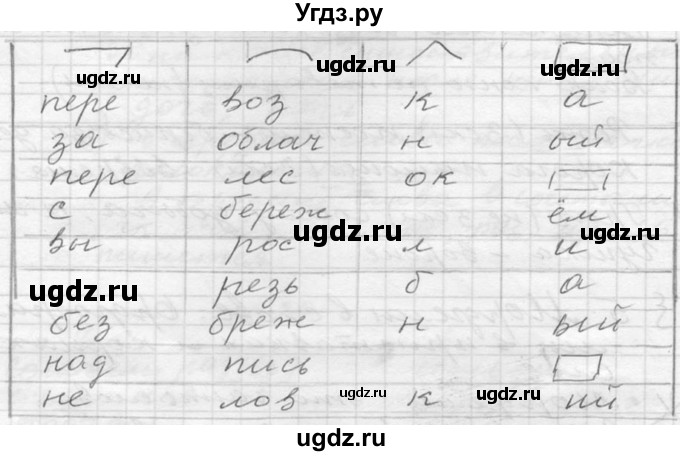 Угдз.ру
ugdz.ru ugdz.ru ugdz.ru
пере воз к а
за облач н ый
ugdz.ru ugdz.ru
пере лес ок
с береж ём
ugdz.ru ugdz.ru
вы рос л и
ugdz.ru резь б а
без бреж н ый
ugdz.ru ugdz.ru
над пись
не лов к ий
ugdz.ru ugdz.ru
ugdz.ru